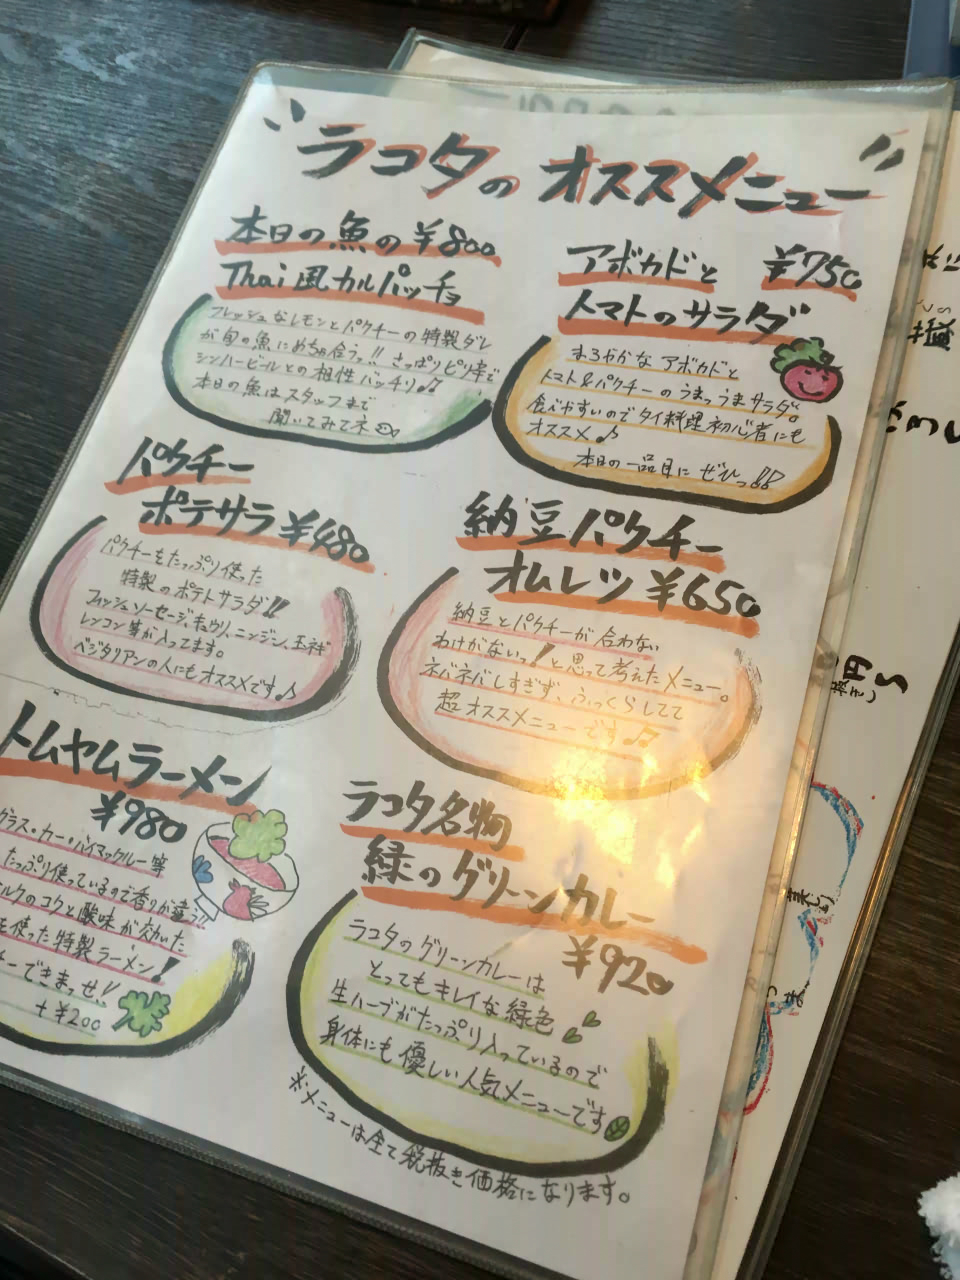 ラコタのオススメニュー
本日の魚の ¥800
Thai風カルパッチョ
フレッシュなレモンとパクチーの特製ダレ
が旬の魚にめちゃ合うっ!! さっぱりピリ辛で
シンハービールとの相性バッチリ♪♪
本日の魚はスタッフまで
聞いてみてネ
アボカドと ¥750
トマトのサラダ
まろやかなアボカドと
トマト&パクチーのうまっうまサラダ。
食べやすいのでタイ料理初心者にも
オススメ♪
本日の一品目にぜひっ!!
パクチー
ポテサラ ¥480
パクチーをたっぷり使った
特製のポテトサラダ!!
フィッシュソーセージ、キュウリ、ニンジン、玉ネギ
レンコン等が入ってます。
ベジタリアンの人にもオススメです♪
納豆パクチー
オムレツ ¥650
納豆とパクチーが合わない
わけがないっ!と思って考えたメニュー。
ネバネバしすぎず、ふっくらしてて
超オススメニューです♪
トムヤムラーメン
¥980
グラス・カー・バイマックルー等
たっぷり使っているので香りが違う!!
ルクのコクと酸味が効いた
を使った特製ラーメン!
ーできまっせ!!
+¥200
ラコタ名物
緑のグリーンカレー
¥920
ラコタのグリーンカレーは
とってもキレイな緑色
生ハーブがたっぷり入っているので
身体にも優しい人気メニューです
※メニューは全て税抜き価格になります。
円